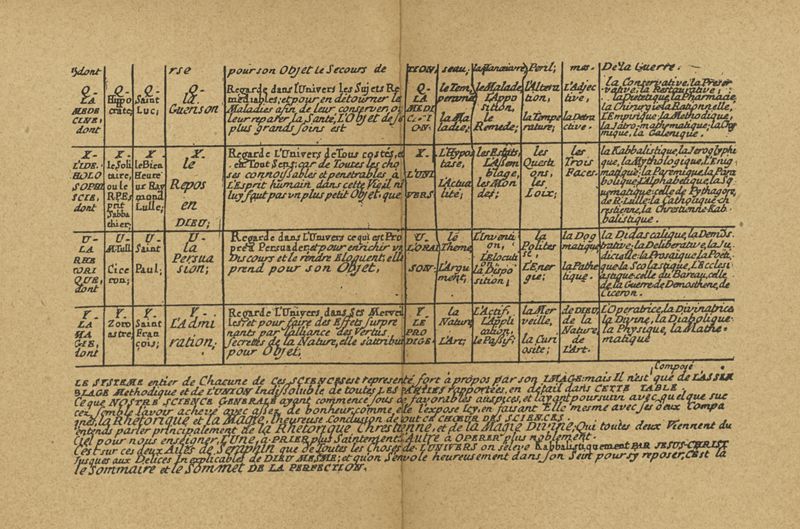 dont
rse
pour son Objet le Secours de
TION,
seau,
la Manœuvre
Peril;
mas-
De la Guerre.
Q-
LA
MEDE
CINE;
dont
Q-
Hippo
crate;
Q-
Saint
Luc;
Q-
la
Guerison
Regarde dans l'Univers les Sujets Re
mediables; et pour en détourner la
Maladie, afin de leur conserver, ou
leur reparer la Santé, L'Objet de ses
plus grands soins est
Q-
LA
MEDI
CATI
ON:
le Tem
perame
la Ma
ladie;
le Malade
L'Appo
sition,
le
Remede;
L'Altera
tion,
la Tempe
rature;
L'Adjec
tive,
la Detra
ctive.
la Conservative, la Preser
vative, la Restaurative;
la Dietetique, la Pharmacie,
la Chirurgie la Rationnelle,
L'Empirique la Methodique,
la Jatro-mathematique; la Chy
mique, la Galenique.
X-
L'IDE-
HOLO
SOPHI
SCIE,
dont
X-
le Soli
taire,
ou le
R.P.Es
prit
Sabba
thier;
X-
le Bien
Heure
ux Ray
mond
Lulle;
X-
le
Repos
en
DIEU;
Regarde L'Univers de Tous costés, et
en Tout Sens; car de Toutes les cho
ses connoissables et penetrables à
L'Esprit humain dans cette Vie, il n'i
luy fait pas un plus petit Objet, que
X-
L'UNI
VERS
L'Hypos
tase,
L'Actua
lité;
les Esprits,
L'Assem
blage,
les Mon
des;
les
Questi
ons,
les
Loix;
les
Trois
Faces.
la Kabbalistique, la Jeroglyphi
que, la Mythologique, L'Enig
matique; la Paremique, la Para
bolique, L'Alphabetique, la Sq
uematique: celle de Pythagore,
de R. Lulle: la Catholique Ch
restienne, la Chrestienne Kab
balistique.
U-
LA
RHE
TORI
QUE;
dont
U-
M. Tull.
Cice
ron;
U-
Saint
Paul;
U-
la
Persua
sion;
Regarde dans L'Univers ce qui est Pro
pre à Persuader; et pour enrichir un
Discours et le rendre Eloquent; elle
prend pour son Objet,
U-
L'ORAI
SON-
le
Theme,
L'Argu
ment,
L'Inventi
on,
L'Elocuti
on,
la Dispo
sition;
la
Polites
se,
L'Ener
gie;
la Dog
matique
la Pathe
tique.
la Didascalique, la Demõs
trative; la Deliberative, la Ju
diciaire la Prosaique la Poeti
que la Scolastique, L'Ecclesi
astique: celle du Barnau, celle
de la Guerre de Demosthene, de
Ciceron.
Y-
LA
MA
GIE;
dont
Y-
Zoro
astre;
Y-
Saint
Fran
çois;
Y-
L'Admi
ration;
Regarde L'Univers, dans ses Merveil
les; et pour faire des Effets Surpre
nants par l'alliance des Vertus
Secretes de la Nature, elle s'attribuë
pour Objet,
Y-
LE
PRO
DIGE:
la
Nature,
L'Art;
L'Actif,
L'Appli
cation,
le Passif;
la Mer
veille,
la Curi
osité;
de DIEU,
de la
Nature,
de
L'Art.
L'Operatrice, la Divinatrice
la Divine, la Diabolique:
la Physique, la Mathe
matique
Composé
LE SYSTEME entier de Chacune de Ces SCIENCES est representé fort à propos par son IMAGE: mais Il n'est que de L'ASSEM
BLAGE Methodique et de L'UNION Indissoluble de toutes LES PARTIES rapportées, en detail dans CETTE TABLE.
Ce que NOSTRE SCIENCE GENERALE ayant commencé sous de favorables auspices, et l'ayant poursuivi avec quelque suc
ces, semble l'avoir achevé avec assez de bonheur, comme elle l'expose Icy, en faisant Elle mesme avec ses deux Compa
gnes, la RHetorique et la Magie, l'heureuse Conclusion de tout ce CHOEUR DES SCIENCES.
J'entends parler principalement de la RHetorique Chrestienne, et de la Magie Divine; Qui toutes deux Viennent du
Ciel pour nous enseigner L'Une, à PRIER plus Saintement: L'Autre à OPERER plus noblement.
C'est sur ces deux Ailes de Seraphin que de Toutes les Choses de L'UNIVERS on s'eleve Kabbalistiquement PAR JESUS-CHRIST
Jusques aux Delices Inexplicables de DIEU MESME; et qu'on s'envole heureusement dans son Sein pour s'y reposer, C'est là
le Sommaire et le Sommet DE LA PERFECTION.